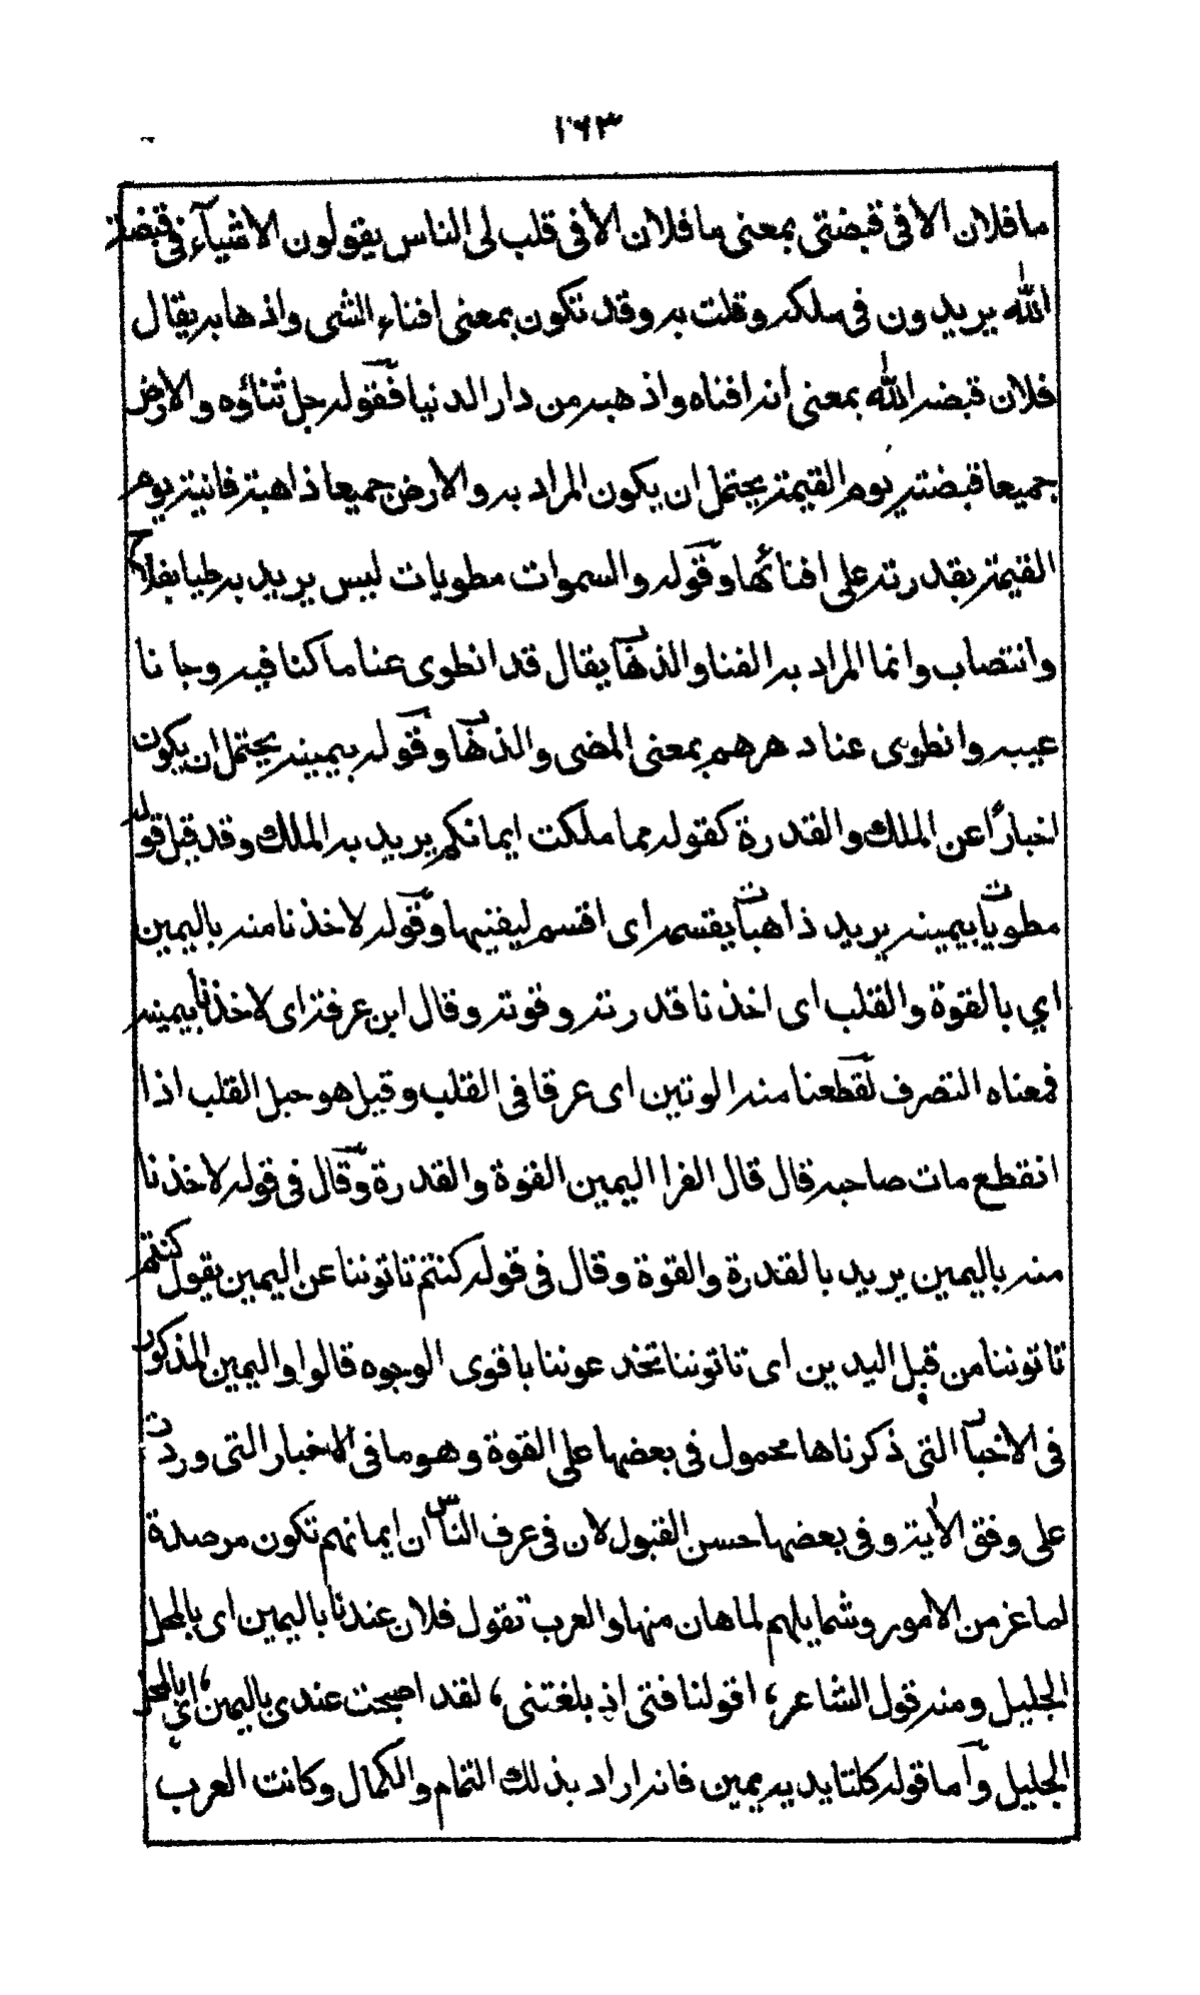 ١٦٣
ما فلان الا فى قبضتى بمعنى ما فلان الا فى قلب لى الناس يقولون الاشيآء فى قبضة
الله يريدون فى ملكه وقلت به وقد تكون بمعنى افناء الشى واذهابه يقال
فلان قبضه الله بمعنى انه افناه واذهبه من دار الدنيا فقوله جل ثناؤه والارض
جميعا قبضته يوم القيمة يحتمل ان يكون المراد به والارض جميعا ذاهبة فانية يوم
القيمة بقدرته على افنائها وقوله والسموات مطويات ليس يريد به طيا بعلاج
وانتصاب وانما المراد به الفنا والذهاب يقال قد انطوى عنا ما كنا فيه وجانا
غيره وانطوى عنا دهرهم بمعنى المضى والذهاب وقوله بيمينه يحتمل ان يكون
اخبارًا عن الملك والقدرة كقوله مما ملكت ايمانكم يريد به الملك وقد قيل قوله
مطويات بيمينه يريد ذاهبات بقسمه اى اقسم ليفنيها وقوله لاخذنا منه باليمين
اي بالقوة والقلب اى اخذنا قدرته وقوته وقال ابن عرفة اى لاخذنا بيمينه
فمعناه التصرف لقطعنا منه الوتين اى عرقا فى القلب وقيل هو حبل القلب اذا
انقطع مات صاحبه قال قال الفرا اليمين القوة والقدرة وقال فى قوله لاخذنا
منه باليمين يريد بالقدرة والقوة وقال فى قوله كنتم تاتوننا عن اليمين يقول كنتم
تاتوننا من قبل اليدين اى تاتوننا تخدعوننا باقوى الوجوه قالوا واليمين المذكور
فى الاخبار التى ذكرناها محمول فى بعضها على القوة وهو ما فى الاخبار التى وردت
على وفق الآية وفى بعضها حسن القبول لان فى عرف الناس ان ايمانهم تكون مرصدة
لما عز من الامور وشمايلهم لما هان منها والعرب تقول فلان عندنا باليمين اى بالمحل
الجليل ومنه قول الشاعر، اقول لنا فتى اذ بلغتنى، لقد اصبحت عندى باليمين، اي بالمحل
الجليل وآما قوله كلتا يديه يمين فانه اراد بذلك التمام والكمال وكانت العرب